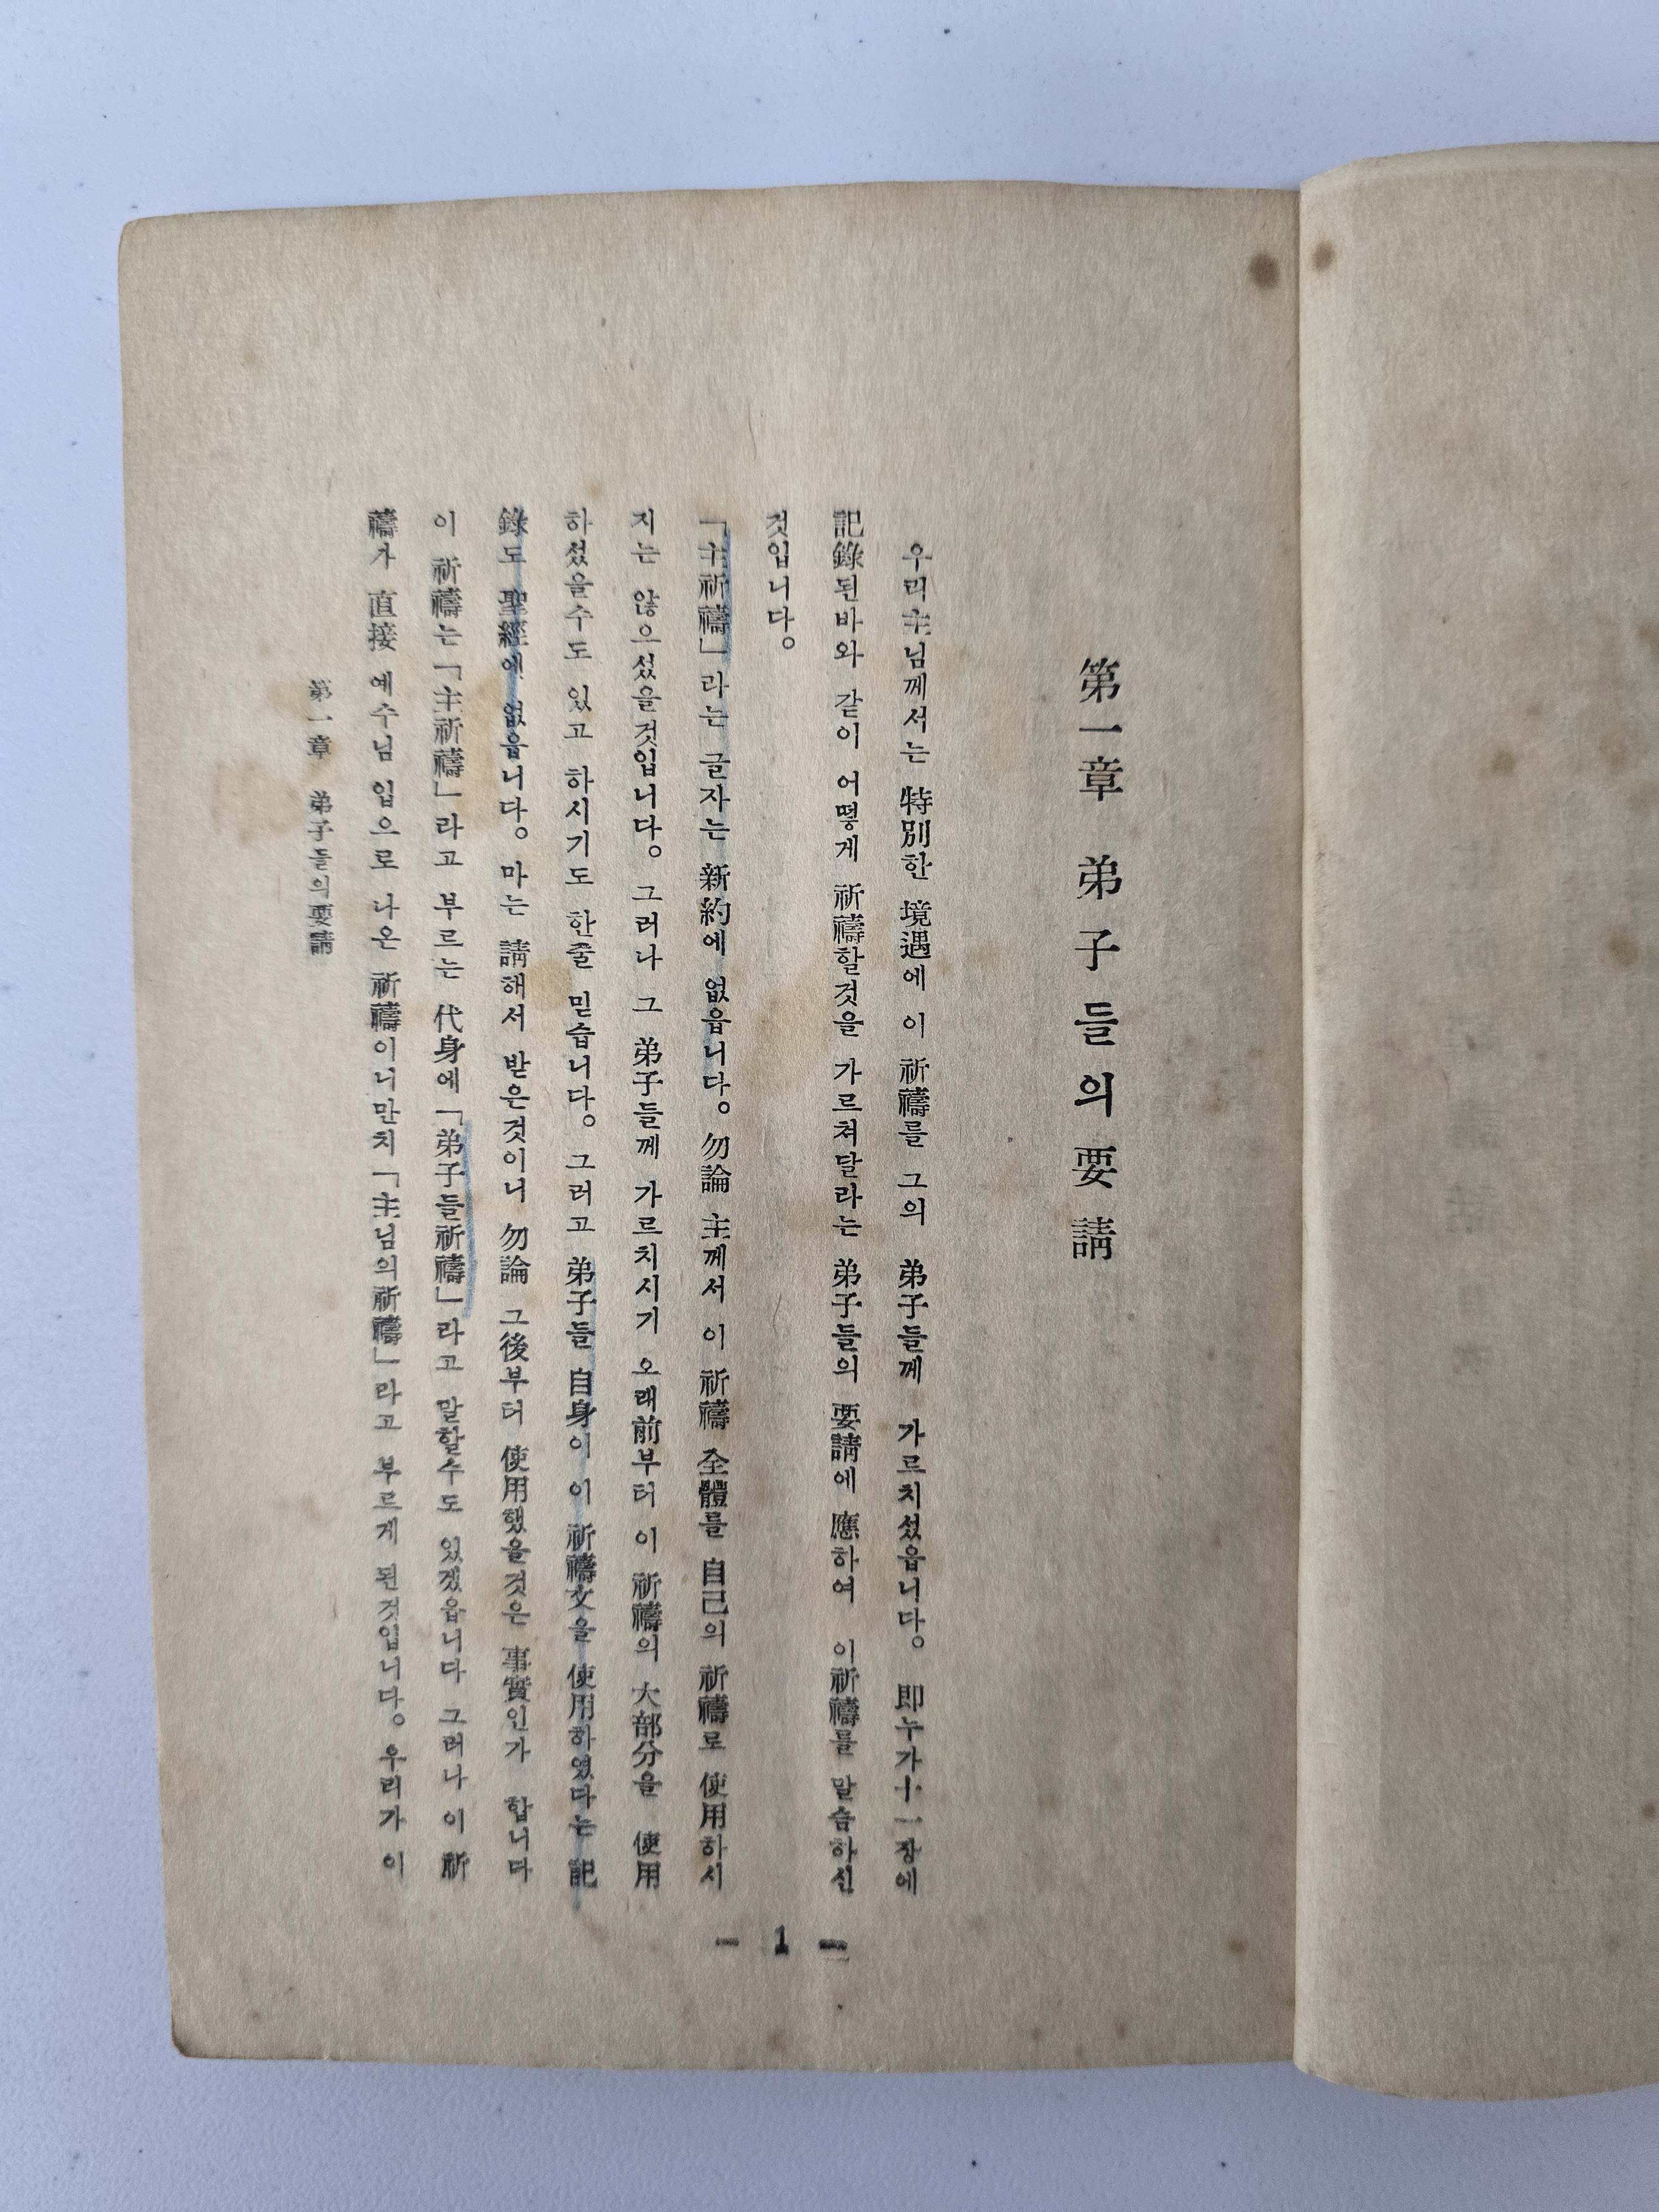 第一章 弟子들의要請
우리主님께서는 特別한 境遇에 이 祈禱를 그의 弟子들께 가르치섰읍니다。 即누가十一장에
記錄된바와 같이 어떻게 祈禱할것을 가르쳐달라는 弟子들의 要請에 應하여 이祈禱를 말슴하신
것입니다。
「主祈禱」라는 글자는 新約에 없읍니다。 勿論 主께서 이 祈禱 全體를 自己의 祈禱로 使用하시
지는 않으섰을것입니다。 그러나 그 弟子들께 가르치시기 오래前부터 이 祈禱의 大部分을 使用
하섰을수도 있고 하시기도 한줄 믿습니다。 그러고 弟子들 自身이 이 祈禱文을 使用하였다는 記
錄도 聖經에 없읍니다。 마는 請해서 받은것이니 勿論 그後부터 使用했을것은 事實인가 합니다
이 祈禱는「主祈禱」라고 부르는 代身에「弟子들祈禱」라고 말할수도 있겠읍니다 그러나 이 祈
禱가 直接 예수님 입으로 나온 祈禱이니만치「主님의祈禱」라고 부르게 된것입니다。 우리가 이
第一章 弟子들의要請
— 1 —